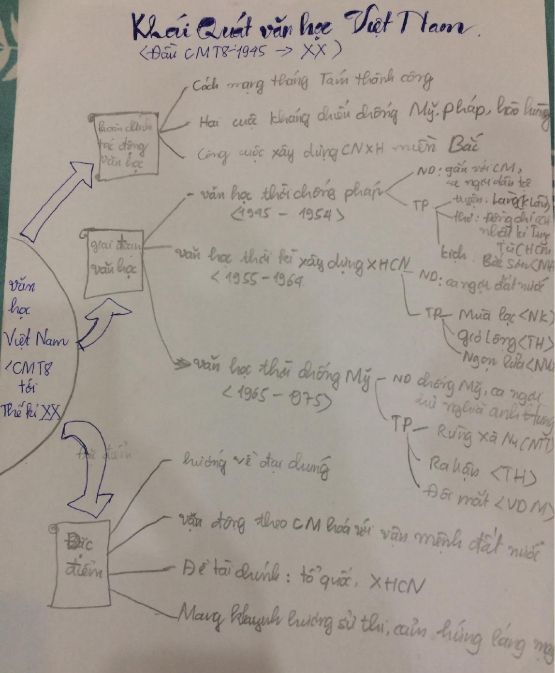 Khái Quát văn học Việt Nam.
<Đầu CMT8-1945 → XX>
Cách mạng tháng Tám thành công
Hai cuộc kháng chiến chống Mỹ, pháp, hào hùng
Công cuộc xây dựng CNXH miền Bắc
hoàn cảnh
tác động
văn học
- văn học thời chống pháp
<1945 - 1954)
ND: gắn với CM,
ca ngợi
TP
truyện: Làng (K Lân)
thơ: Đồng chí
nhật kí
kịch: Bắc Sơn
giai đoạn
văn học
văn học thời kì xây dựng XHCN
<1955-1964
ND: ca ngợi đất nước
TP
Mùa lạc <NK>
Gió lộng <TH>
Ngọn lửa
văn học thời chống Mỹ
<1965 - 1975)
ND chống Mỹ, ca ngợi
chủ nghĩa anh hùng
TP
Rừng Xà Nu (NTT)
Ra trận <TH>
Đôi mắt <VDM)
văn
học
Việt Nam
<CMT8
tới
Thế kỉ XX
Đặc
điểm
hướng về đại chúng
vận động theo CM hoá với vận mệnh đất nước
Đề tài chính: tổ quốc, XHCN
Mang khuynh hướng sử thi, cảm hứng lãng mạn